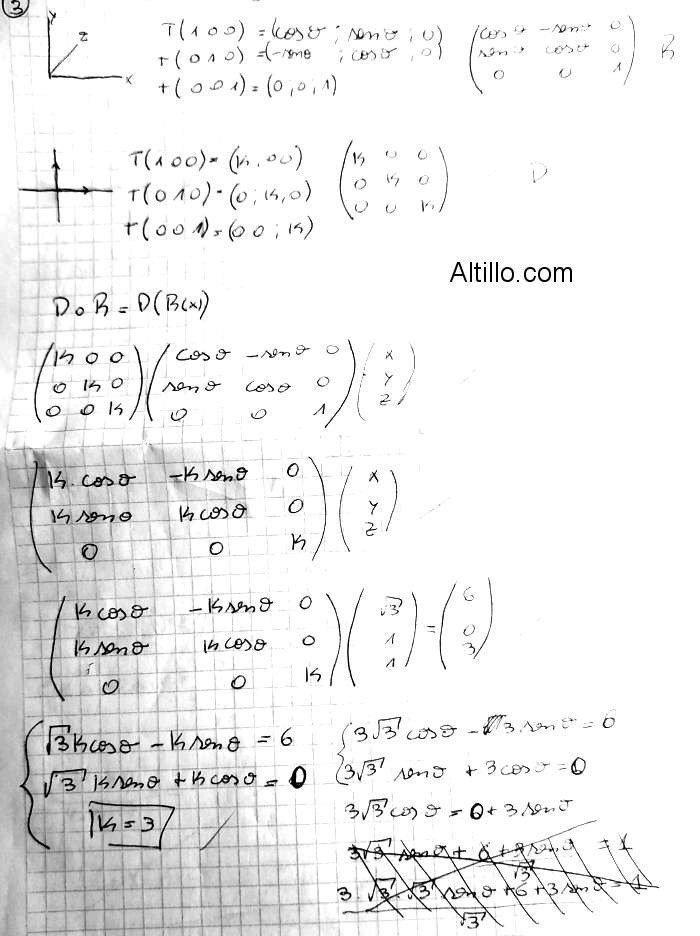 3
y
z
x
T(1 0 0) = (cos θ ; sen θ ; 0)
T(0 1 0) = (-sen θ ; cos θ ; 0)
T(0 0 1) = (0 ; 0 ; 1)
cos θ -sen θ 0
sen θ cos θ 0
0 0 1
R
T(1 0 0) = (K, 0 0)
T(0 1 0) = (0 ; K, 0)
T(0 0 1) = (0 0 ; K)
K 0 0
0 K 0
0 0 K
D
Altillo.com
D o R = D(R(x))
(K 0 0) (cos θ -sen θ 0) (x)
(0 K 0) (sen θ cos θ 0) (y)
(0 0 K) (0 0 1) (z)
(K. cos θ -K sen θ 0) (x)
(K sen θ K cos θ 0) (y)
(0 0 K) (z)
(K cos θ -K sen θ 0) (√3) (6)
(K sen θ K cos θ 0) (1) = (0)
(0 0 K) (1) (3)
√3 K cos θ - K sen θ = 6
√3 K sen θ + K cos θ = 0
K = 3
3√3 cos θ - 3 sen θ = 6
3√3 sen θ + 3 cos θ = 0
3√3 cos θ = 6 + 3 sen θ
3√3 sen θ + 6 + 3 sen θ = 1
√3
3 . √3 . √3 sen θ + 6 + 3 sen θ = 1
√3